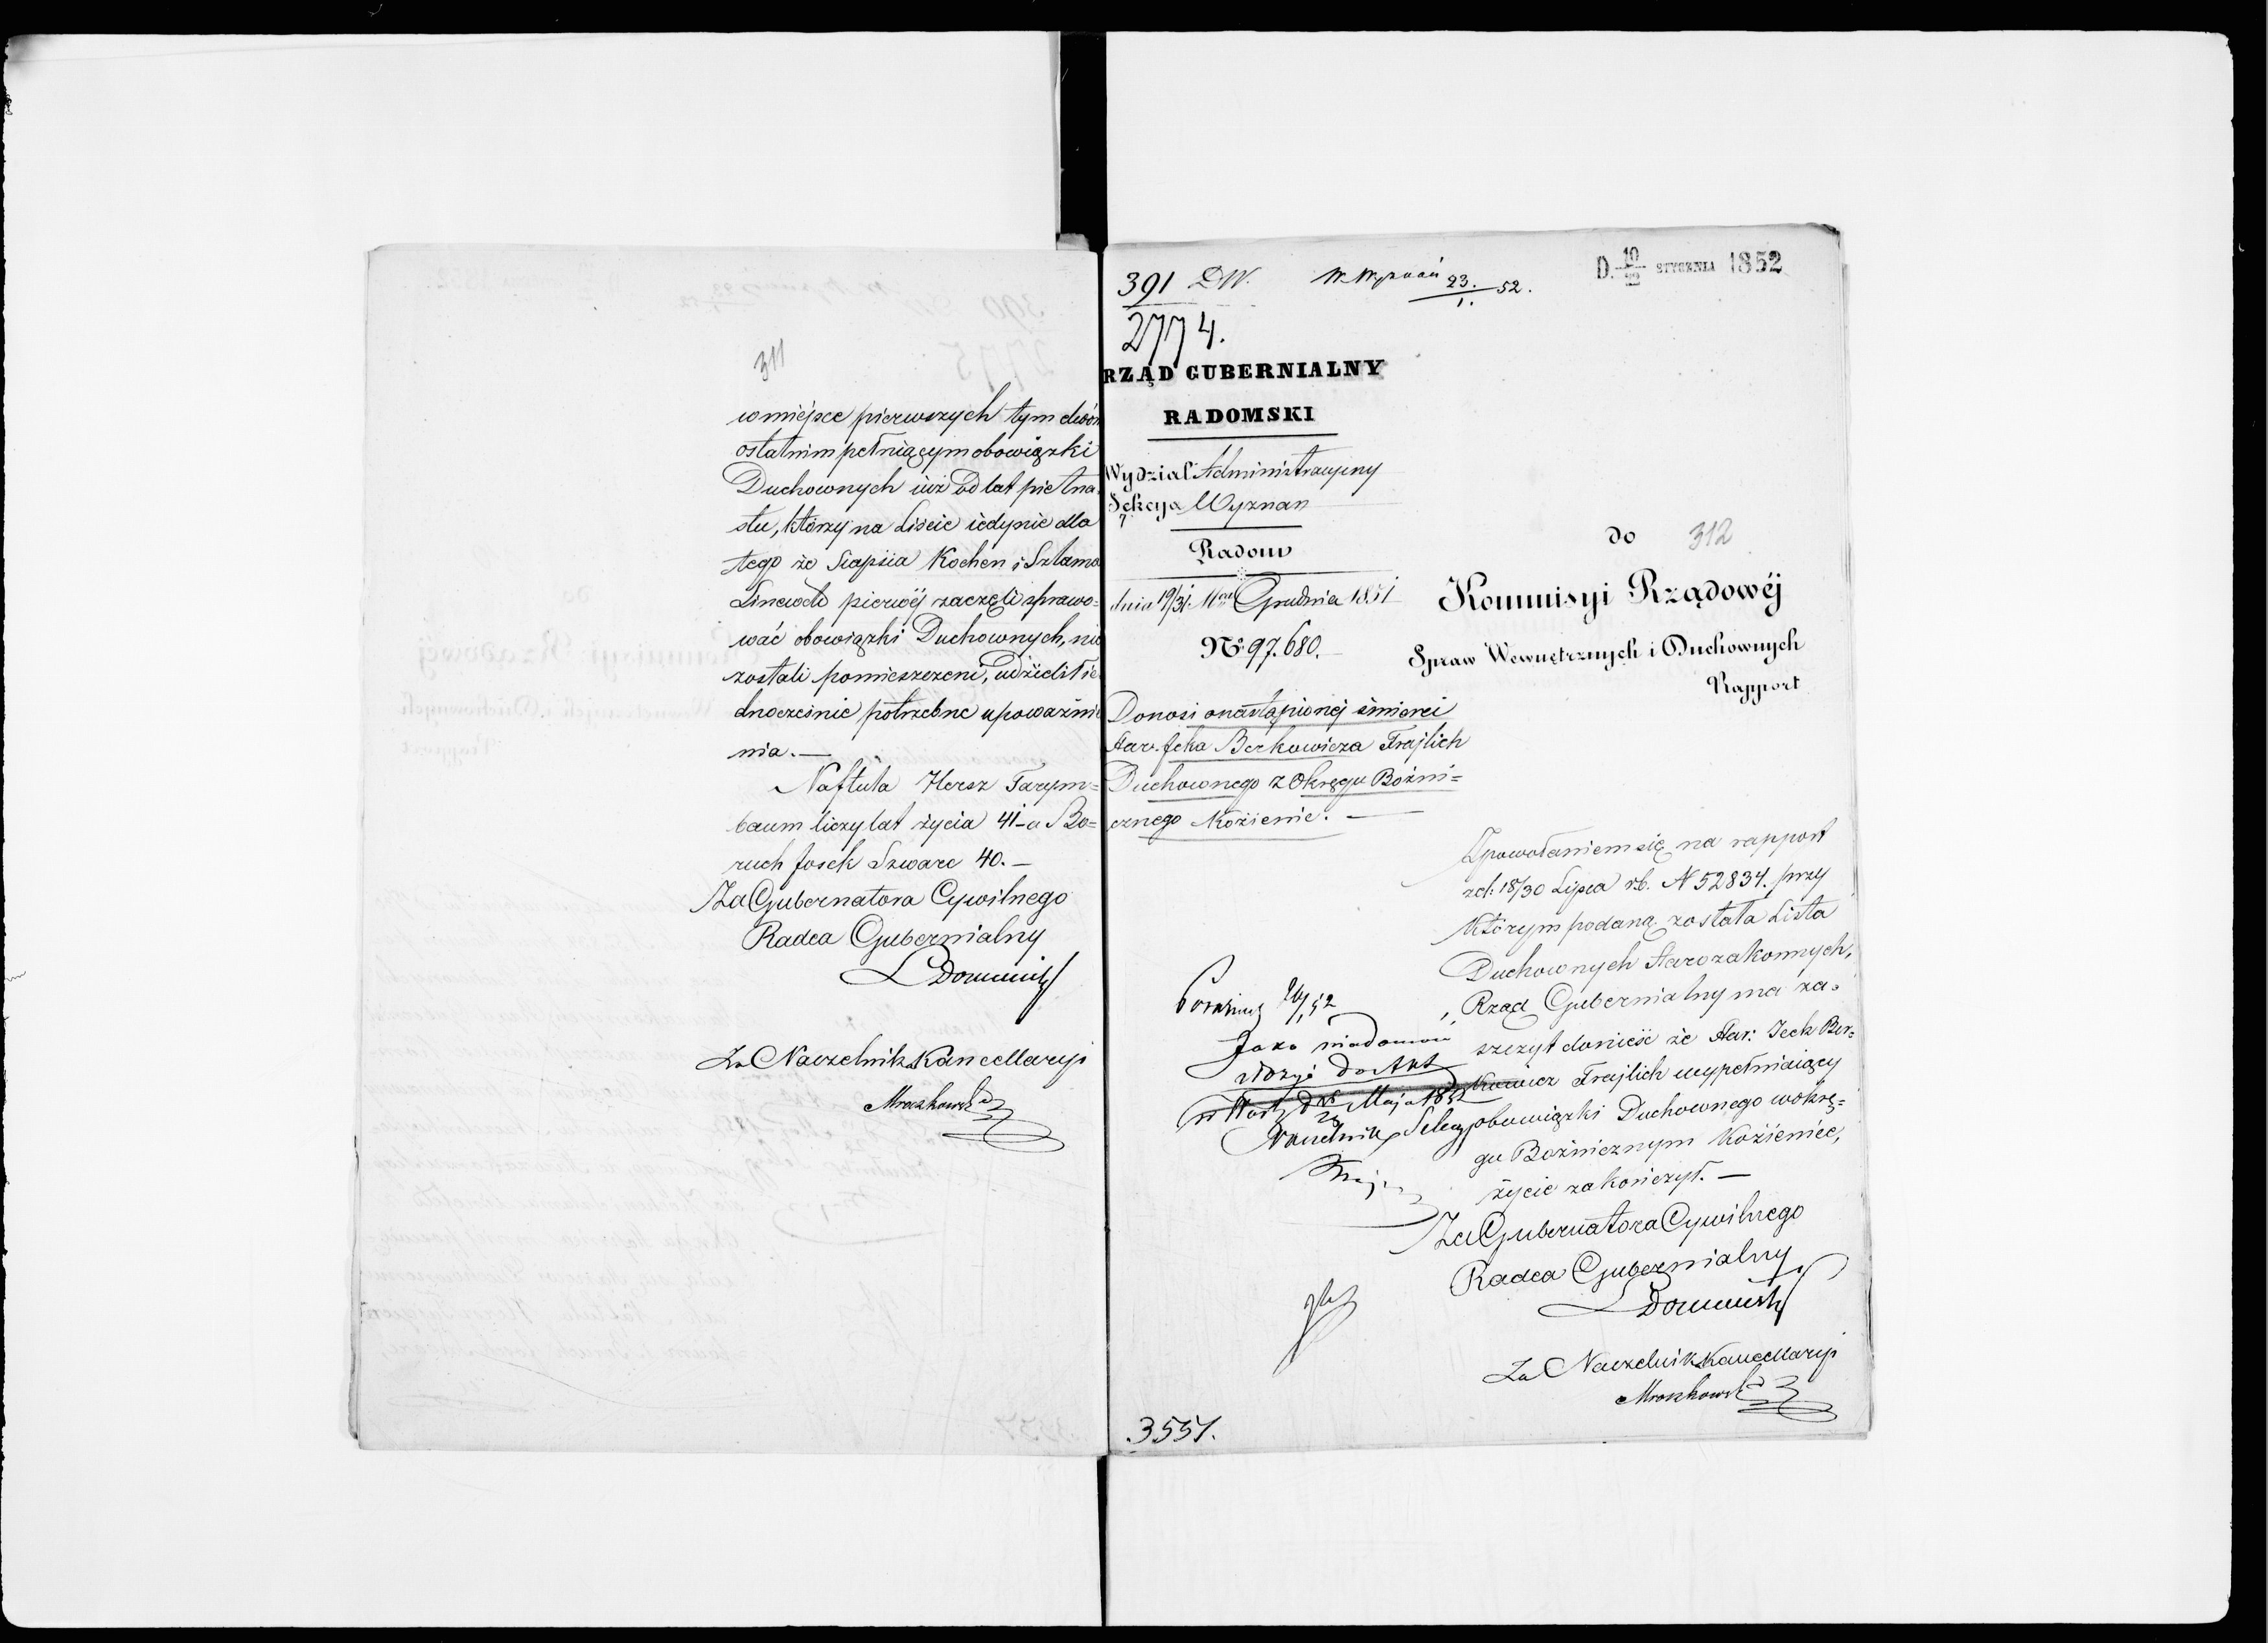 311
w miéjsce pierwszych tym dwóm
ostatnim pełniącym obowiązki
Duchownych iuż od lat pietna
stu, którzy na Liście iedynie dla
tego że Siapsia Kochen i Szlama
pierwéj zaczęli sprawo=
wać obowiązki Duchownych, nie
zostali pomieszczeni, udzielił ie
dnocześnie potrzebne upoważnie
nia. —
Naftula Hersz Tarym=
baum liczy lat życia 41 – a Bo=
ruch Josek Szwarc 40. —
Za Gubernatora Cywilnego
Radca Gubernialny
Za Naczelnika Kancellaryi
Mroczkowski
391 DW. W. Wyznań 23./1. 52.
D. 10/22 STYCZNIA 1852
2774.
RZĄD GUBERNIALNY
RADOMSKI
Wydział Administracyjny
Sekcya Wyznan
Radom
dnia 19/31 Mca Grudnia 1851
No 97.680.
do 312
Kommisyi Rządowéj
Spraw Wewnętrznych i Duchownych
Rapport
Donosi o nastąpionéj śmierci
Star. Jcka Berkowicza Frajlich
Duchownego z Okręgu Bożni=
cznego Kozienic. —
Z powołaniem się na rapport
z d: 18/30 Lipca r.b. N 52834. przy
którym podaną została Lista
Duchownych Starozakonnych,
Rząd Gubernialny ma za=
szczyt donieść że Star: Icek Ber=
kowicz Frajlich wypełniaiący
obowiązki Duchownego w okrę=
gu Bożnicznym Kozienice,
życie zakończył. —
Za Gubernatora Cywilnego
Radca Gubernialny
Za Naczelnika Kancellaryi
Mroczkowski
Jako wiadomość
złożyć do Akt
Maja 1852
Naczelnik Sekcyi
3557.